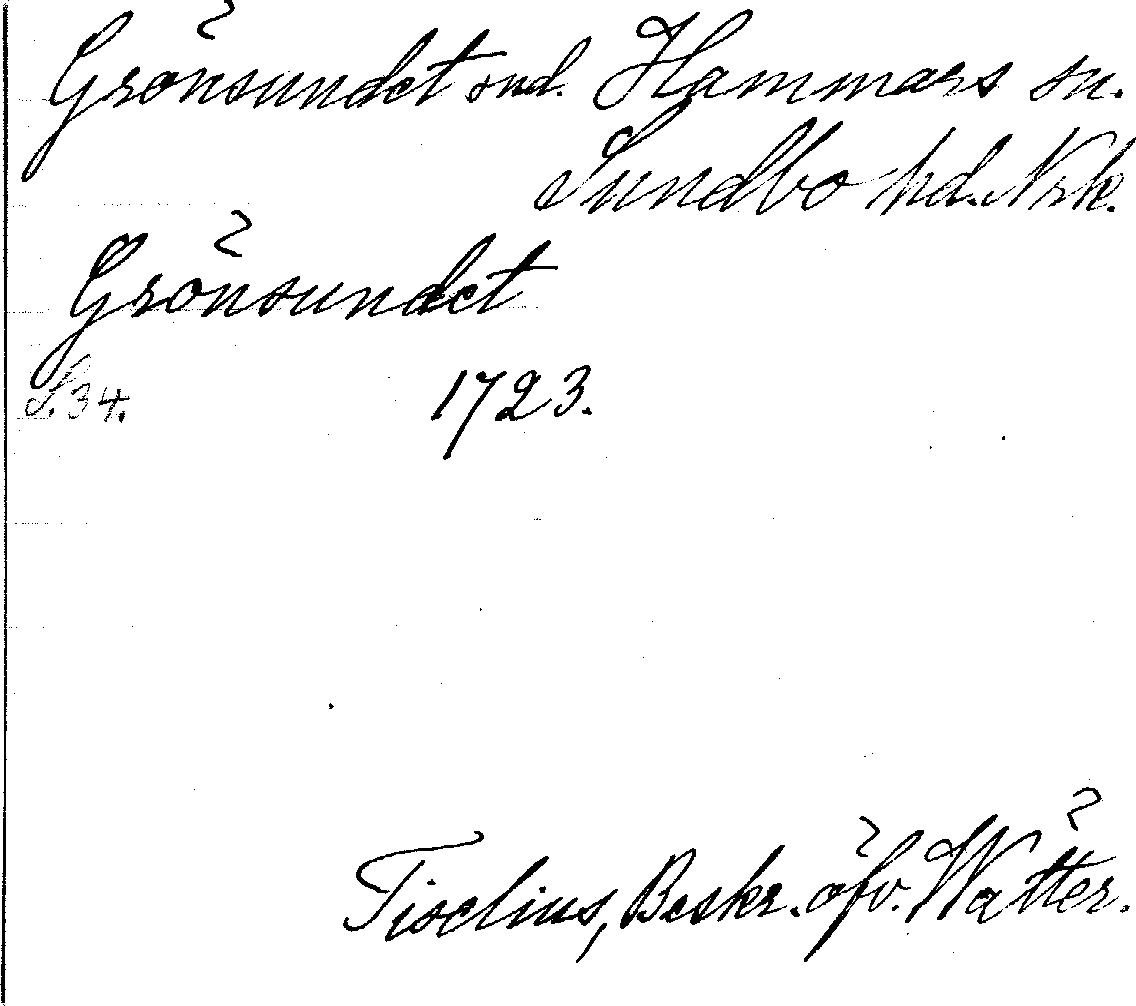 Grönsundet snd. Hammars sn.
Sundbo hd. Nrk.
Grönsundet
S. 34. 1723.
Tiselius, Beskr. öfv. Wätter.